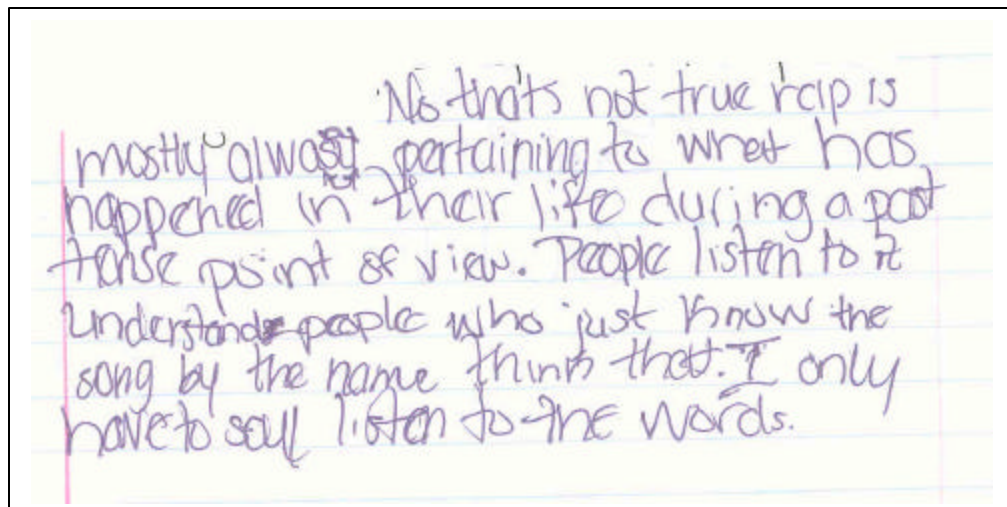 No thats not true rap is
mostly always pertaining to what has
happened in their life during a past
tense point of view. People listen to it
understand people who just know the
song by the name think that. I only
have to say listen to the words.